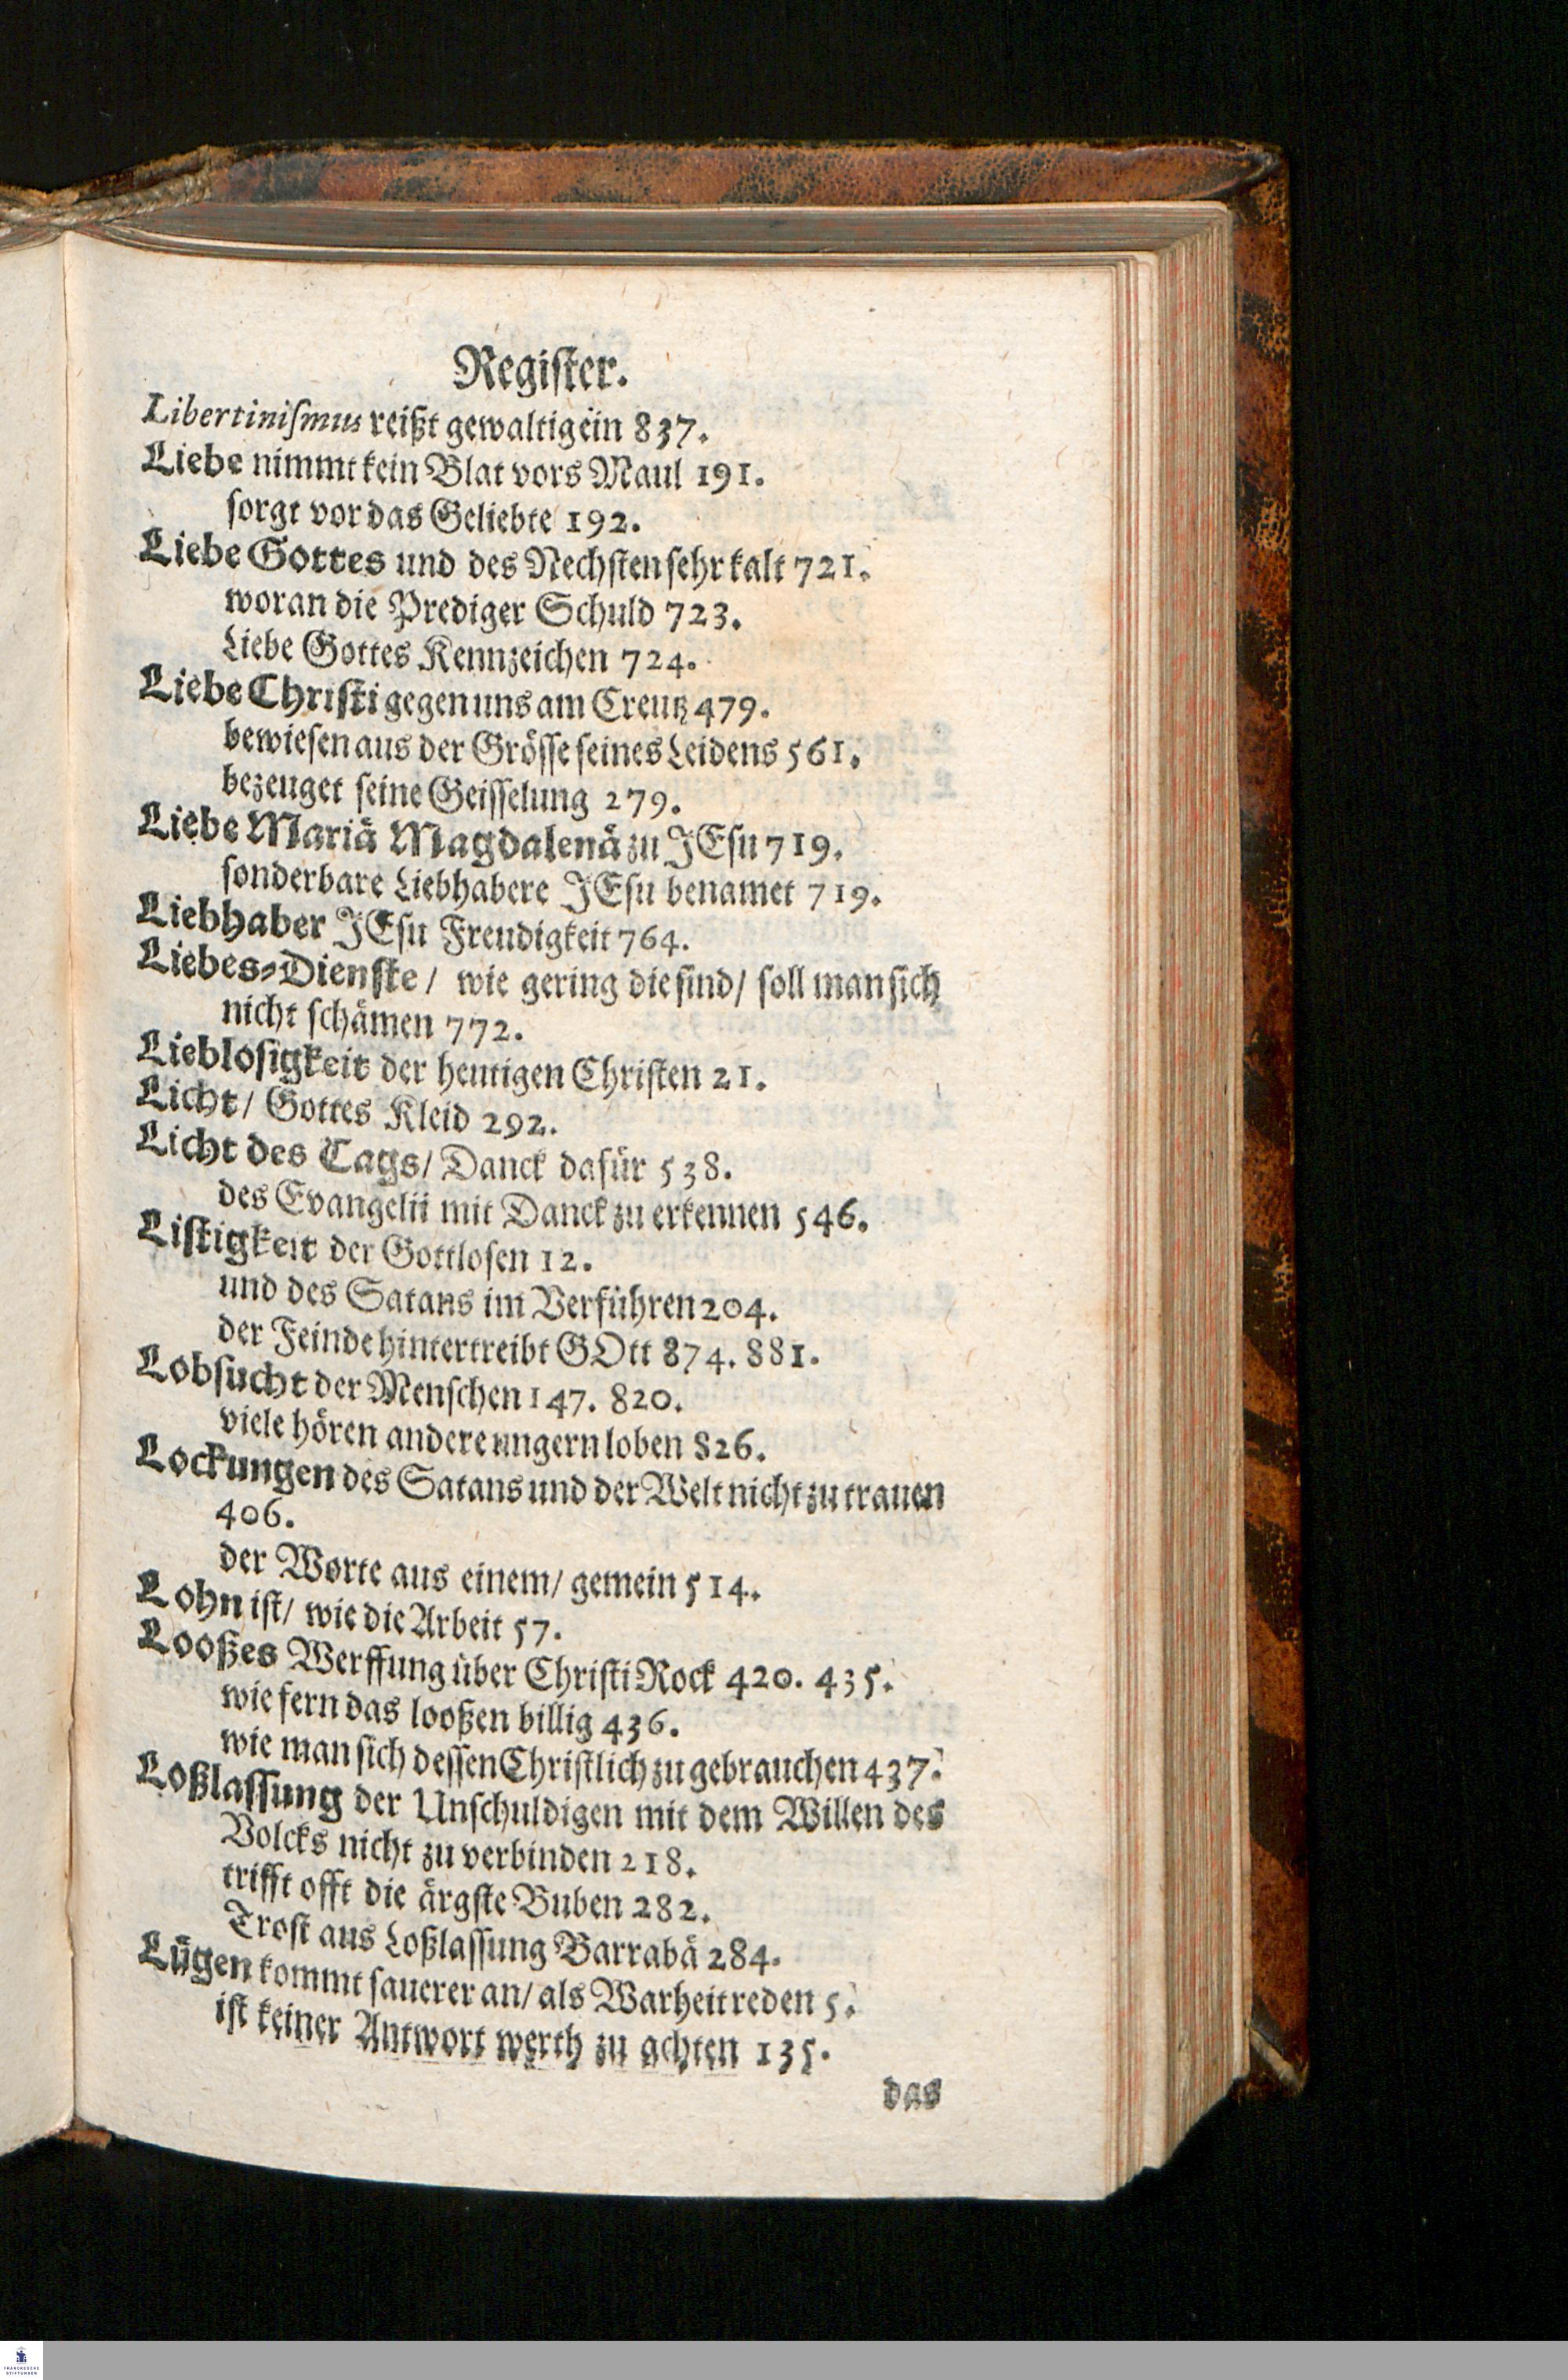 Regiſter.
Libertiniſmus reißt gewaltig ein 837.
Liebe nimmt kein Blat vors Maul 191.
ſorgt vor das Geliebte 192.
Liebe Gottes und des Nechſten ſehr kalt 721.
woran die Prediger Schuld 723.
Liebe Gottes Kennzeichen 724.
Liebe Chriſti gegen uns am Creutz 479.
bewieſen aus der Gröſſe ſeines Leidens 561.
bezeuget ſeine Geiſſelung 279.
Liebe Mariä Magdalenä zu JEſu 719.
ſonderbare Liebhabere JEſu benamet 719.
Liebhaber JEſu Freudigkeit 764.
Liebes-Dienſte/ wie gering die ſind/ ſoll man ſich
nicht ſchämen 772.
Liebloſigkeit der heutigen Chriſten 21.
Licht/ Gottes Kleid 292.
Licht des Tags/ Danck dafür 538.
des Evangelii mit Danck zu erkennen 546.
Liſtigkeit der Gottloſen 12.
und des Satans im Verführen 204.
der Feinde hintertreibt GOtt 874. 881.
Lobſucht der Menſchen 147. 820.
viele hören andere ungern loben 826.
Lockungen des Satans und der Welt nicht zu trauen
406.
der Worte aus einem/ gemein 514.
Lohn iſt/ wie die Arbeit 57.
Looßes Werffung über Chriſti Rock 420. 435.
wie fern das looßen billig 436.
wie man ſich deſſen Chriſtlich zu gebrauchen 437.
Loßlaſſung der Unſchuldigen mit dem Willen des
Volcks nicht zu verbinden 218.
trifft offt die ärgſte Buben 282.
Troſt aus Loßlaſſung Barrabä 284.
Lügen kommt ſauerer an/ als Warheit reden 5.
iſt keiner Antwort werth zu achten 135.
das
FRANCKESCHE
STIFTUNGEN